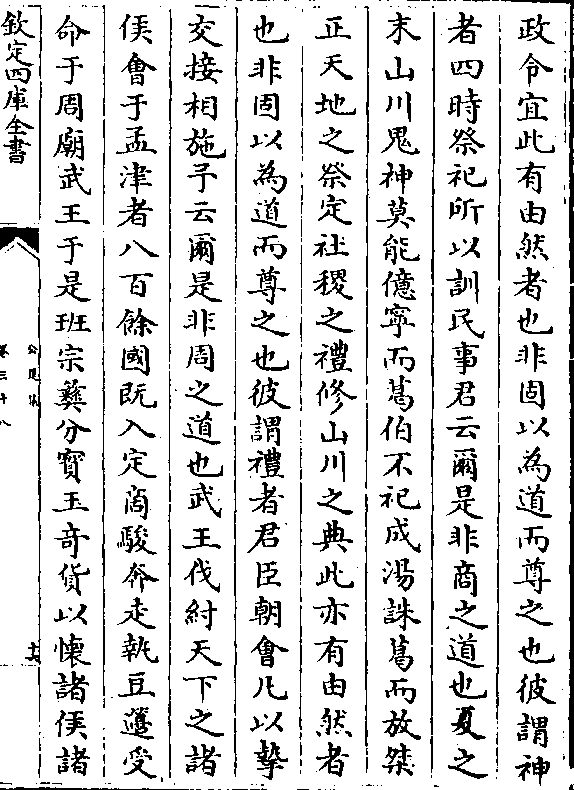 政令宜此有由然者也非固以為道而尊之也彼謂神
者四時祭祀所以訓民事君云爾是非商之道也夏之
末山川鬼神莫能億寧而葛伯不祀成湯誅葛而放桀
正天地之祭定社稷之禮修山川之典此亦有由然者
也非固以為道而尊之也彼謂禮者君臣朝會凡以摯
交接相施予云爾是非周之道也武王伐紂天下之諸
侯會于孟津者八百餘國既入定商駿奔走執豆籩受
命于周廟武王于是班宗彝分寶玉奇貨以懷諸侯諸
欽定四庫全書
公是集
卷三十八